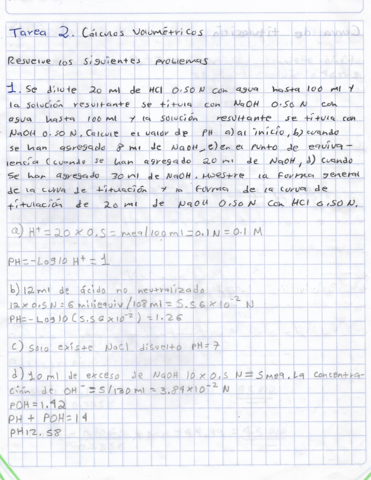 Tarea 2. Cálculos Volumétricos
Resuelve los siguientes problemas
1. Se dilute 20 ml de HCl 0.50 N con agua hasta 100 ml y
la solución resultante se titula con NaOH 0.50 N con
agua hasta 100 ml y la solución resultante se titula con
NaOH 0.50 N. Calcule el valor de PH a) al inicio, b) cuando
se han agregado 8 ml de NaOH, c) en el punto de equiva-
lencia (cuando se han agregado 20 ml de NaOH, d) cuando
se han agregado 30 ml de NaOH. Muestre la forma general
de la curva de titulación y la forma de la curva de
titulación de 20 ml de NaOH 0.50 N con HCl 0.50 N.
a) H⁺ = 20 x 0.5 = meq/100 ml = 0.1 N = 0.1 M
PH = -Log10 H⁺ = 1
b) 12 ml de ácido no neutralizado
12 x 0.5 N = 6 miliequiv/108 ml = 5.56 x 10⁻² N
PH = -Log10 (5.56 x 10⁻²) = 1.26
c) Solo existe NaCl disuelto PH = 7
d) 10 ml de exceso de NaOH 10 x 0.5 N = 5 meq. La concentra-
ción de OH⁻ = 5/130 ml = 3.84 x 10⁻² N
POH = 1.42
PH + POH = 14
PH 12.58